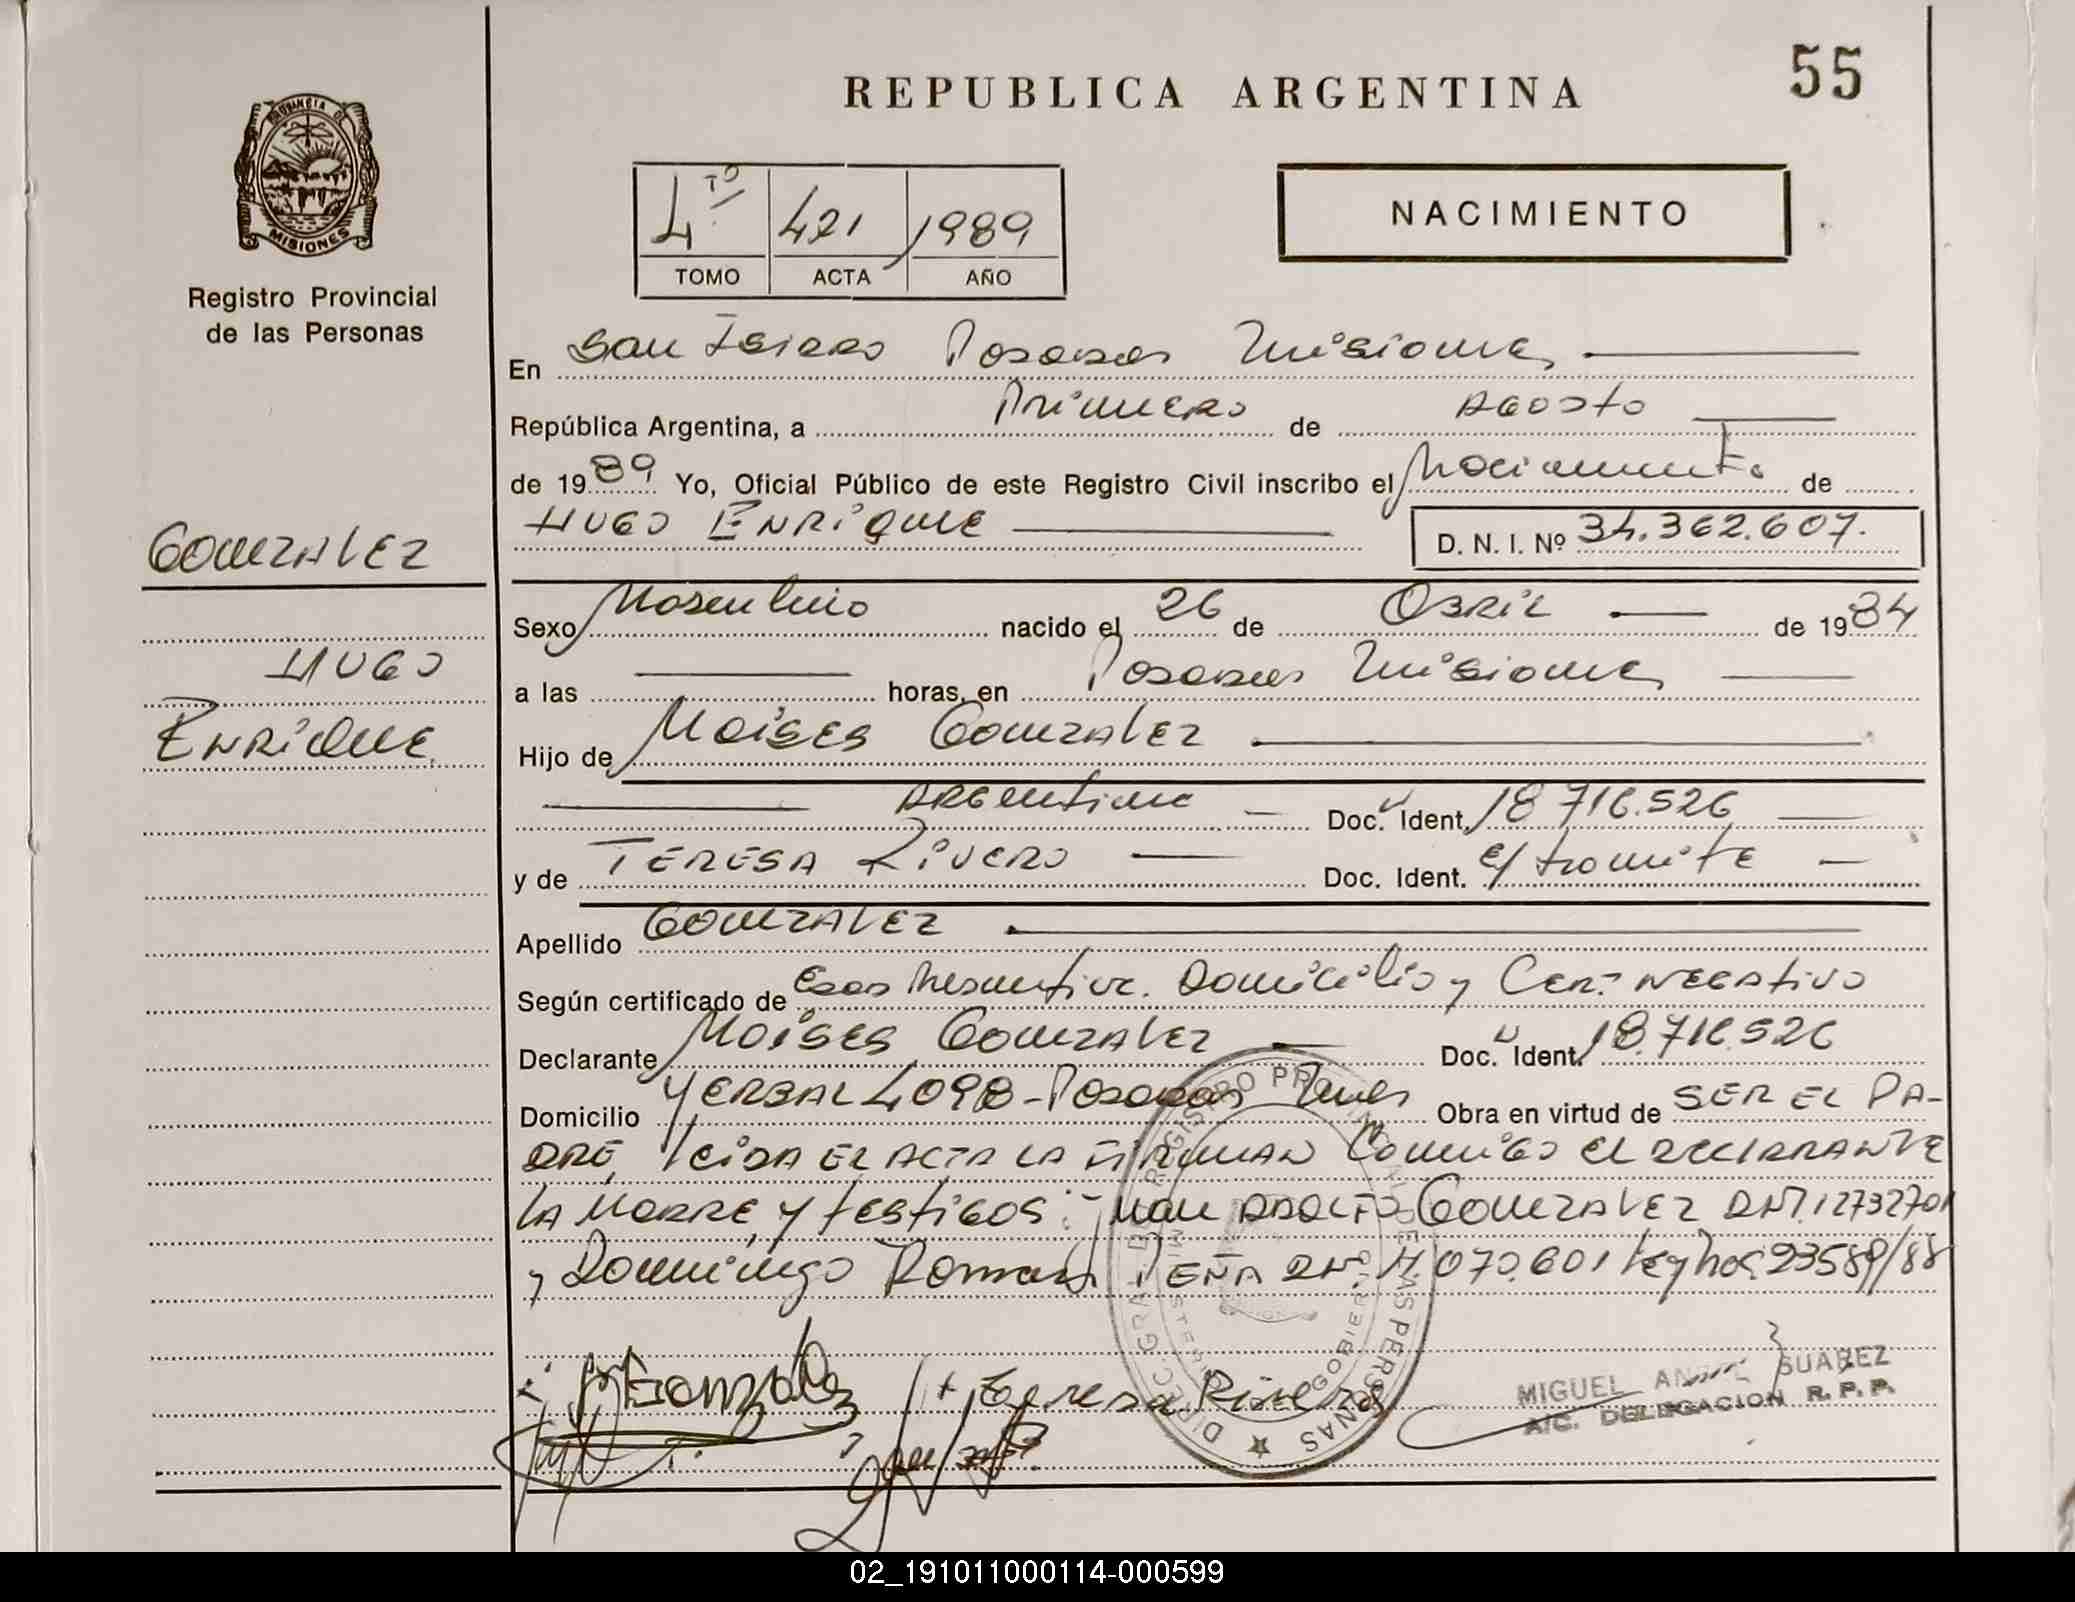 55
REPUBLICA ARGENTINA
PROVINCIA DE
MISIONES
Registro Provincial
de las Personas
4TO 421 1989
TOMO ACTA AÑO
NACIMIENTO
En San Isidro Posadas Misiones
República Argentina, a Primero de Agosto
de 1989 Yo, Oficial Público de este Registro Civil inscribo el Nacimiento de
HUGO ENRIQUE D. N. I. Nº 34.362.607.
GONZALEZ
HUGO
ENRIQUE
Sexo Masculino nacido el 26 de Abril de 1984
a las horas, en Posadas Misiones
Hijo de Moises Gonzalez
Argentino Doc. Ident. 18.716.526
y de TERESA Rivero Doc. Ident. e/ tramite
Apellido GONZALEZ
Según certificado de Domicilio y Cert. NEGATIVO
Declarante Moises Gonzalez Doc. Ident. 18.716.526
Domicilio YERBAL 4098 - Posadas Mnes Obra en virtud de SER EL PA-
DRE, leida EL ACTA LA FIRMAN Conmigo el declarante
LA MADRE, y testigos: ADOLFO GONZALEZ DNI.
y Domingo Roman PEÑA 23589/88
M Gonzalez Teresa Rivero
MIGUEL SUAREZ
A/C. DELEGACION R. P. P.
DIREC. GRAL. DE REGISTRO PROVINCIAL DE LAS PERSONAS
MINISTERIO GOBIERNO
02_191011000114-000599